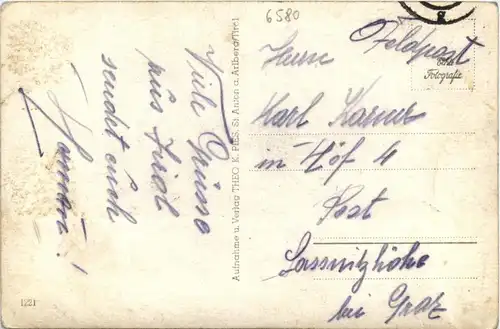 6580
Feldpost
Echte
Fotografie
Herrn
Karl Karner
in Höf 4
Post
Lassnitzhöhe
bei Graz
Viele Grüsse
aus Tirol
sendet euch
Aufnahme u. Verlag THEO K. St. Anton a. Arlberg (Tirol
1221